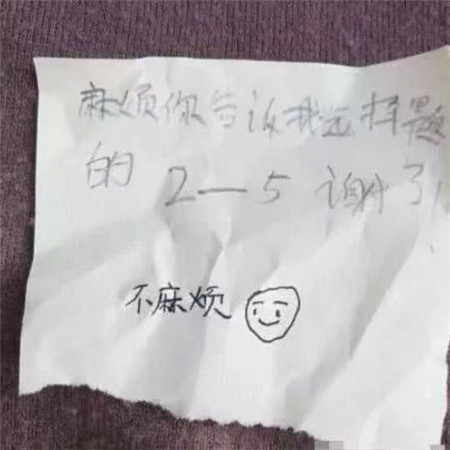 麻烦你告诉我选择题
的 2—5 谢了!
不麻烦